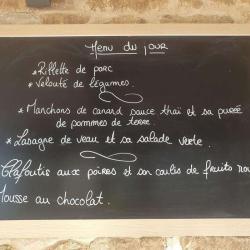 Menu du jour
* Rillette de porc
* Velouté de légumes.
* Manchons de canard sauce thaï et sa purée
de pommes de terre.
* Lasagne de veau et sa salade verte.
Clafoutis aux poires et son coulis de fruits rou
Mousse au chocolat.